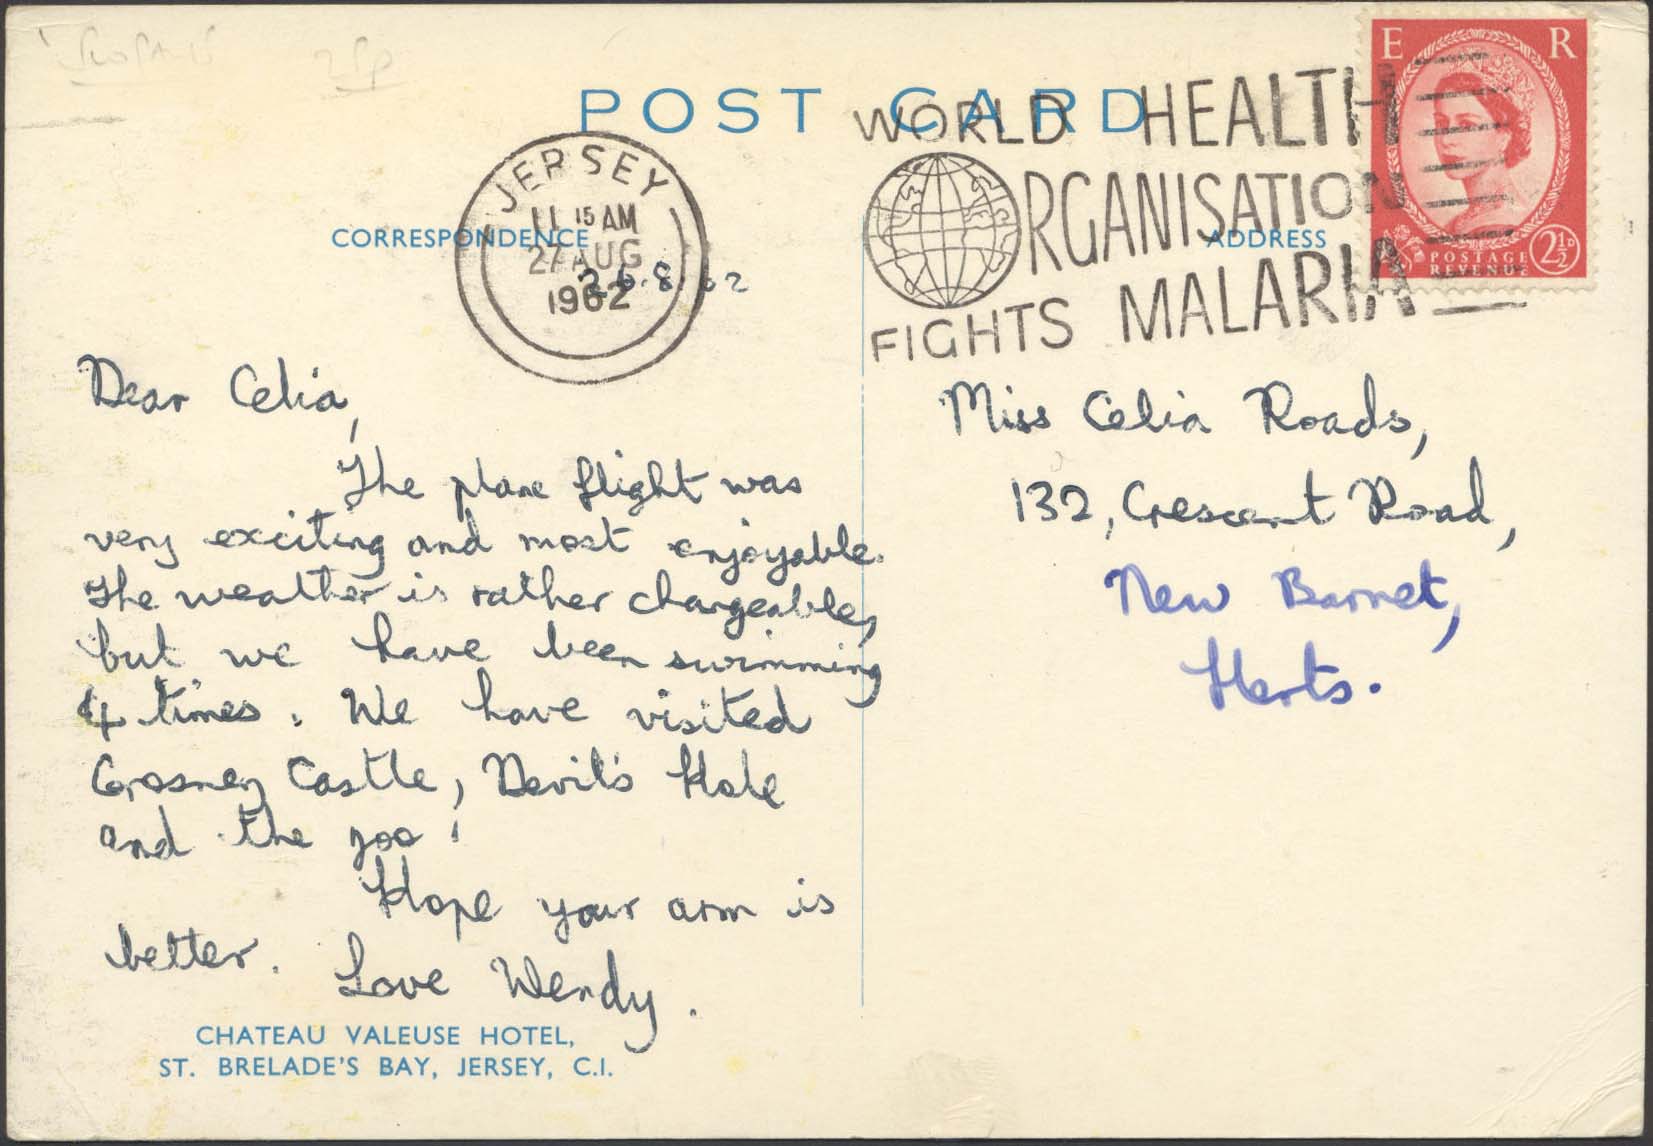 POST CARD
E R
WORLD HEALTH
ORGANISATION
FIGHTS MALARIA
POSTAGE
REVENUE
2½D
JERSEY
11 15 AM
27 AUG
1962
CORRESPONDENCE
ADDRESS
26.8.62
Dear Celia,
The plane flight was
very exciting and most enjoyable.
The weather is rather changeable,
but we have been swimming
4 times. We have visited
Grosnez Castle, Devil's Hole
and the zoo.
Hope your arm is
better. Love Wendy.
CHATEAU VALEUSE HOTEL,
ST. BRELADE'S BAY, JERSEY, C.I.
Miss Celia Roads,
132, Crescent Road,
New Barnet,
Herts.